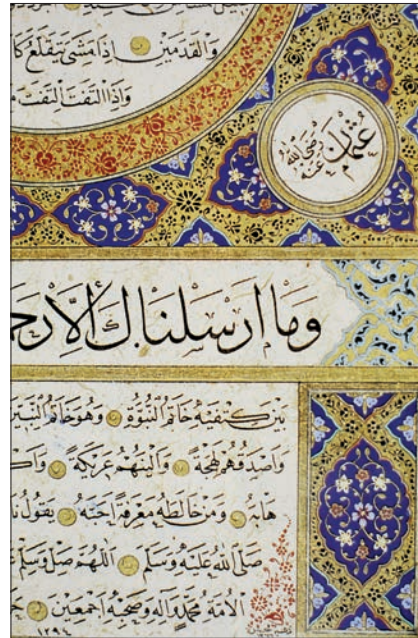 والقدمين اذا مشى تقلع كا
واذا التفت التفت م
عثمان رضى الله عنه
وما ارسلناك الا رحم
بين كتفيه خاتم النبوة وهو خاتم النبيين
واصدقهم لهجة والينهم عريكة واك
هابه ومن خالطه معرفة احبه يقول نا
صلى الله عليه وسلم اللهم صل وسلم
الامة محمد وآله وصحبه اجمعين
١٢٩٤